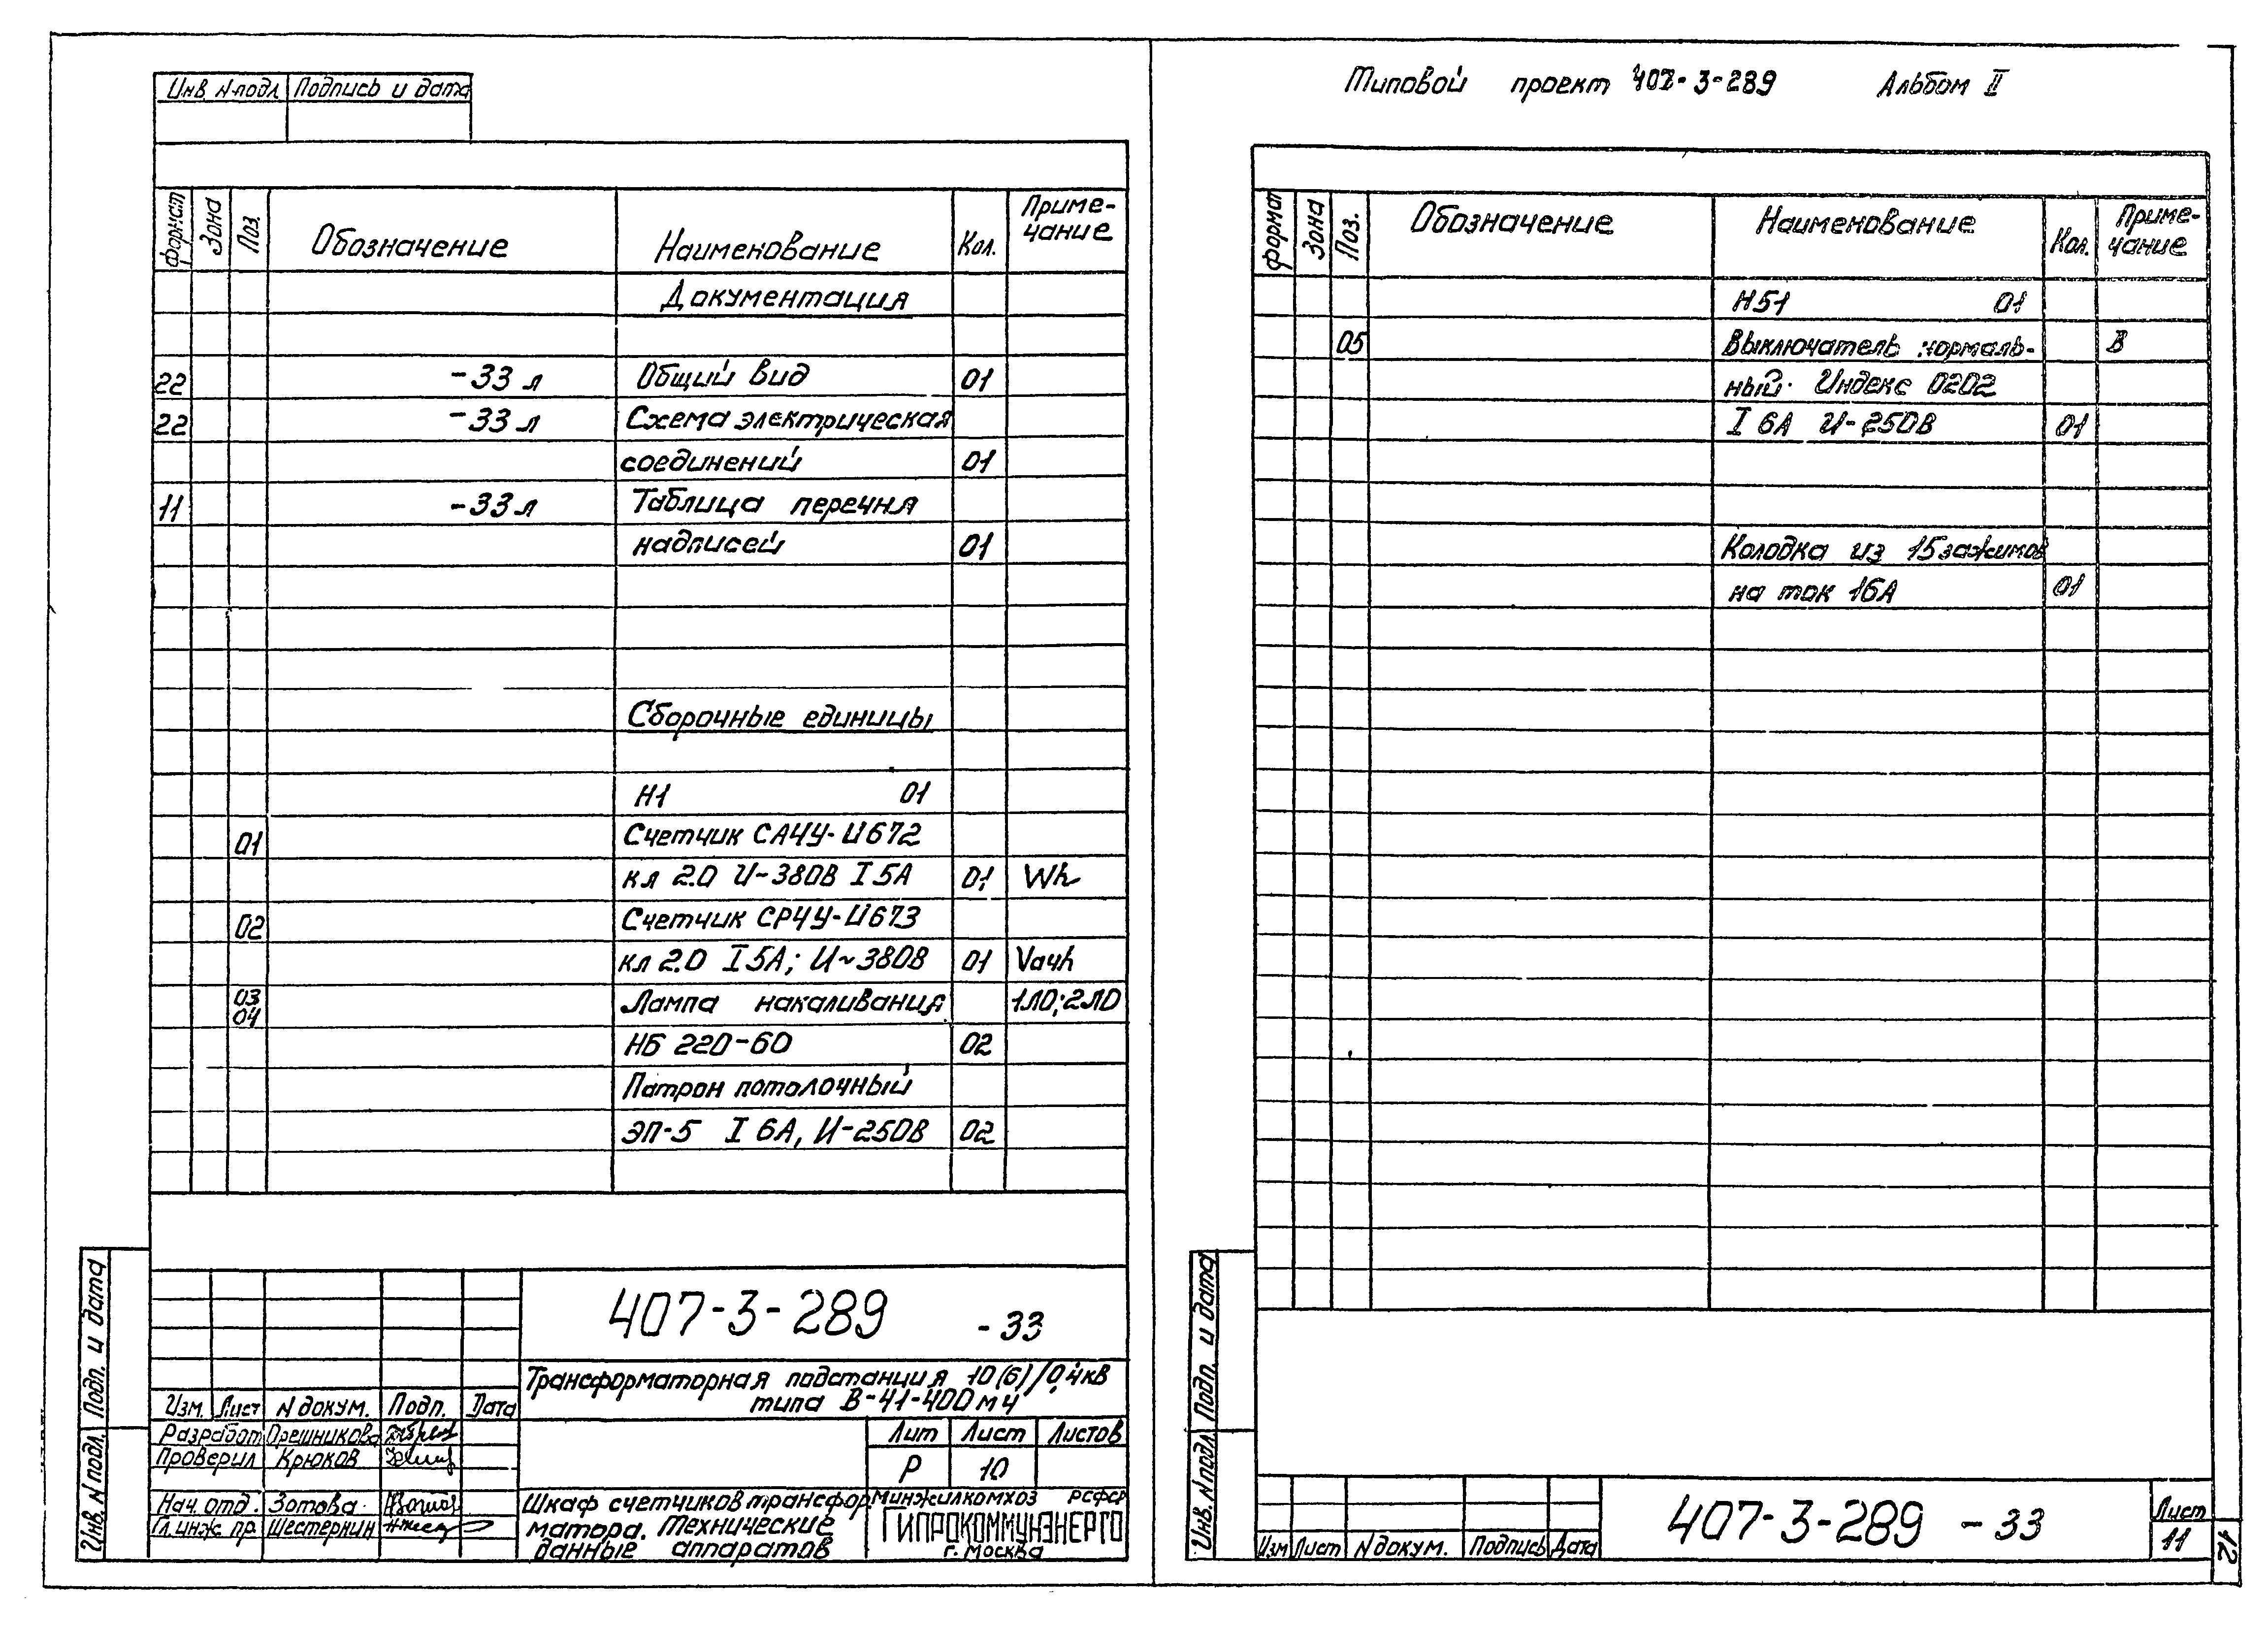 Инв. N подл. Подпись и дата
Формат Зона Поз. Обозначение Наименование Кол. Приме-
чание
Документация
22 -33 л Общий вид 01
22 -33 л Схема электрическая
соединений 01
11 -33 л Таблица перечня
надписей 01
Сборочные единицы
Н1 01
01 Счетчик СА4У-И672
кл 2.0 U-380В I 5А 01 Wh
02 Счетчик СР4У-И673
кл 2.0 I 5А; U~380В 01 Varh
03
04 Лампа накаливания 1ЛО;2ЛО
НБ 220-60 02
Патрон потолочный
ЭП-5 I 6А, U-250В 02
Подп. и дата
Инв. N подл.
407-3-289 -33
Трансформаторная подстанция 10(6)/0,4кВ
типа В-41-400м4
Изм. Лист N докум. Подп. Дата
Разработ Орешникова
Проверил Крюков
Нач. отд. Зотова
Гл.инж. пр. Шестернин
Лит Лист Листов
Р 10
Шкаф счетчиков трансфор
матора. Технические
данные аппаратов
Минжилкомхоз РСФСР
ГИПРОКОММУНЭНЕРГО
г. Москва
Типовой проект 407-3-289 Альбом II
Формат Зона Поз. Обозначение Наименование Кол. Приме-
чание
Н51 01
05 Выключатель нормаль- В
ный. Индекс 0202
I 6А U-250В 01
Колодка из 15 зажимов
на ток 16А 01
Подп. и дата
Инв. N подл.
Изм Лист N докум. Подпись Дата
407-3-289 -33
Лист
11
12